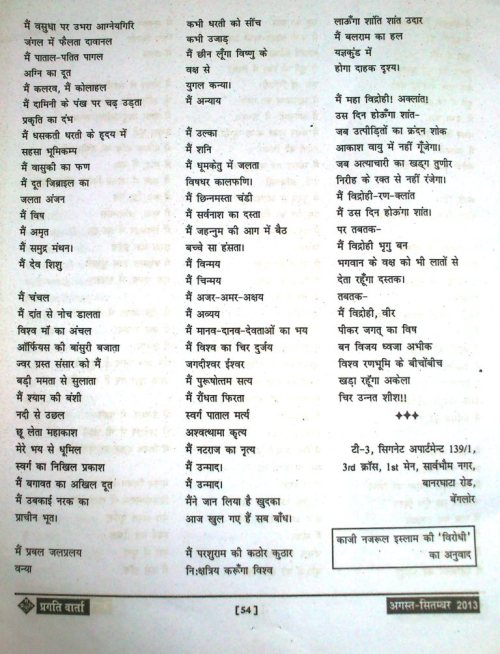 मैं वसुधा पर उभरा आग्नेयगिरि
जंगल में फैलता दावानल
मैं पाताल-पतित पागल
अग्नि का दूत
मैं कलरव, मैं कोलाहल
मैं दामिनी के पंख पर चढ़ उड़ता
प्रकृति का दंभ
मैं धसकती धरती के हृदय में
सहसा भूमिकम्प
मैं वासुकी का फण
मैं दूत जिब्राइल का
जलता अंजन
मैं विष
मैं अमृत
मैं समुद्र मंथन।
मैं देव शिशु
मैं चंचल
मैं दांत से नोच डालता
विश्व माँ का अंचल
ऑर्फियस की बांसुरी बजाता
ज्वर ग्रस्त संसार को मैं
बड़ी ममता से सुलाता
मैं श्याम की बंशी
नदी से उछल
छू लेता महाकाश
मेरे भय से धूमिल
स्वर्ग का निखिल प्रकाश
मैं बगावत का अखिल दूत
मैं उबकाई नरक का
प्राचीन भूत।
मैं प्रबल जलप्रलय
वन्या
कभी धरती को सींच
कभी उजाड़
मैं छीन लूँगा विष्णु के
वक्ष से
युगल कन्या।
मैं अन्याय
मैं उल्का
मैं शनि
मैं धूमकेतु में जलता
विषधर कालफणि।
मैं छिन्नमस्ता चंडी
मैं सर्वनाश का दस्ता
मैं जहन्नुम की आग में बैठ
बच्चे सा हंसता।
मैं विन्मय
मैं चिन्मय
मैं अजर-अमर-अक्षय
मैं अव्यय
मैं मानव-दानव-देवताओं का भय
मैं विश्व का चिर दुर्जय
जगदीश्वर ईश्वर
मैं पुरूषोत्तम सत्य
मैं रौंधता फिरता
स्वर्ग पाताल मर्त्य
अश्वत्थामा कृत्य
मैं नटराज का नृत्य
मैं उन्माद।
मैं उन्माद।
मैंने जान लिया है खुदका
आज खुल गए हैं सब बाँध।
मैं परशुराम की कठोर कुठार
नि:क्षत्रिय करूँगा विश्व
लाऊँगा शांति शांत उदार
मैं बलराम का हल
यज्ञकुंड में
होगा दाहक दृश्य।
मैं महा विद्रोही अक्लांत!
उस दिन होऊँगा शांत-
जब उत्पीड़ितों का क्रंदन शोक
आकाश वायु में नहीं गूँजेगा।
जब अत्याचारी का खड्ग तुणीर
निरीह के रक्त से नहीं रंजेगा।
मैं विद्रोही-रण-क्लांत
मैं उस दिन होऊंगा शांत।
पर तबतक-
मैं विद्रोही भृगु बन
भगवान के वक्ष को भी लातों से
देता रहूँगा दस्तक।
तबतक-
मैं विद्रोही, वीर
पीकर जगत् का विष
बन विजय ध्वजा अभीक
विश्व रणभूमि के बीचोंबीच
खड़ा रहूँगा अकेला
चिर उन्नत शीश!!
टी-3, सिगनेट अपार्टमेन्ट 139/1,
3rd क्रॉस, 1st मेन, सार्वभौम नगर,
बानरघाटा रोड,
बेंगलोर
काजी नजरूल इस्लाम की 'विरोधी'
का अनुवाद
प्रगति वार्ता
[54]
अगस्त-सितम्बर 2013